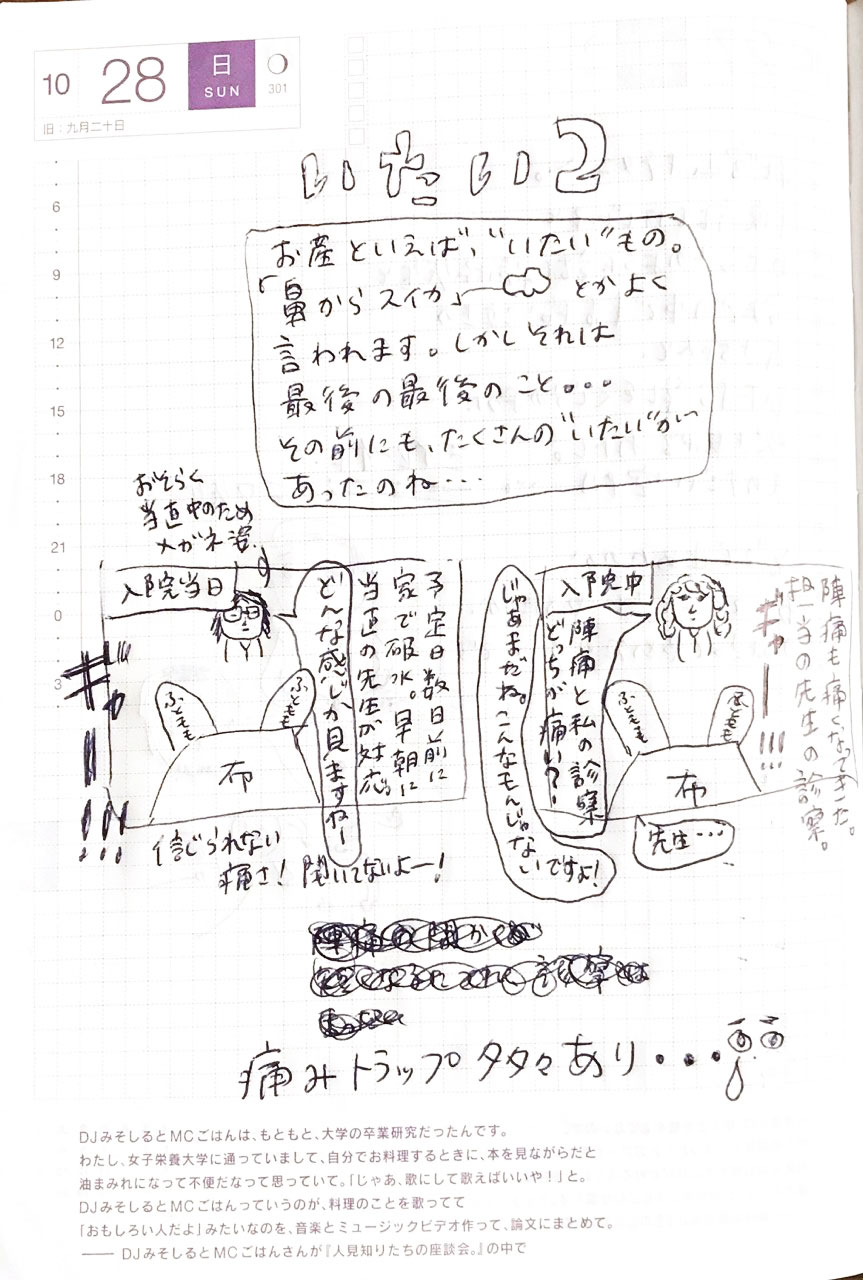 10 28 日 SUN 301
旧：九月二十日
6
9
12
15
18
21
0
3
いたい2
お産といえば、"いたい"もの。
「鼻からスイカ」とかよく
言われます。しかしそれは
最後の最後のこと。。。
その前にも、たくさんの"いたい"が
あったのね・・・
入院中
陣痛も痛くなってきた。
担当の先生の診察。
ギャー!!!
陣痛と私の診察
どっちが痛い？
じゃあまだね。こんなもんじゃない
ですよ！
ふともも
ふともも
布
先生・・・
おそらく
当直中のため
メガネ姿。
入院当日
予定日数日前に
家で破水。早朝に
当直の先生が対応。
どんな感じか見ますねー
ふともも
ふともも
布
ギャー!!!
信じられない
痛さ！聞いてないよー！
痛みトラップ タタ々あり・・・
DJみそしるとMCごはんは、もともと、大学の卒業研究だったんです。
わたし、女子栄養大学に通っていまして、自分でお料理するときに、本を見ながらだと
油まみれになって不便だなって思っていて。「じゃあ、歌にして歌えばいいや！」と。
DJみそしるとMCごはんっていうのが、料理のことを歌ってて
「おもしろい人だよ」みたいなのを、音楽とミュージックビデオ作って、論文にまとめて。
—— DJみそしるとMCごはんさんが『人見知りたちの座談会。』の中で